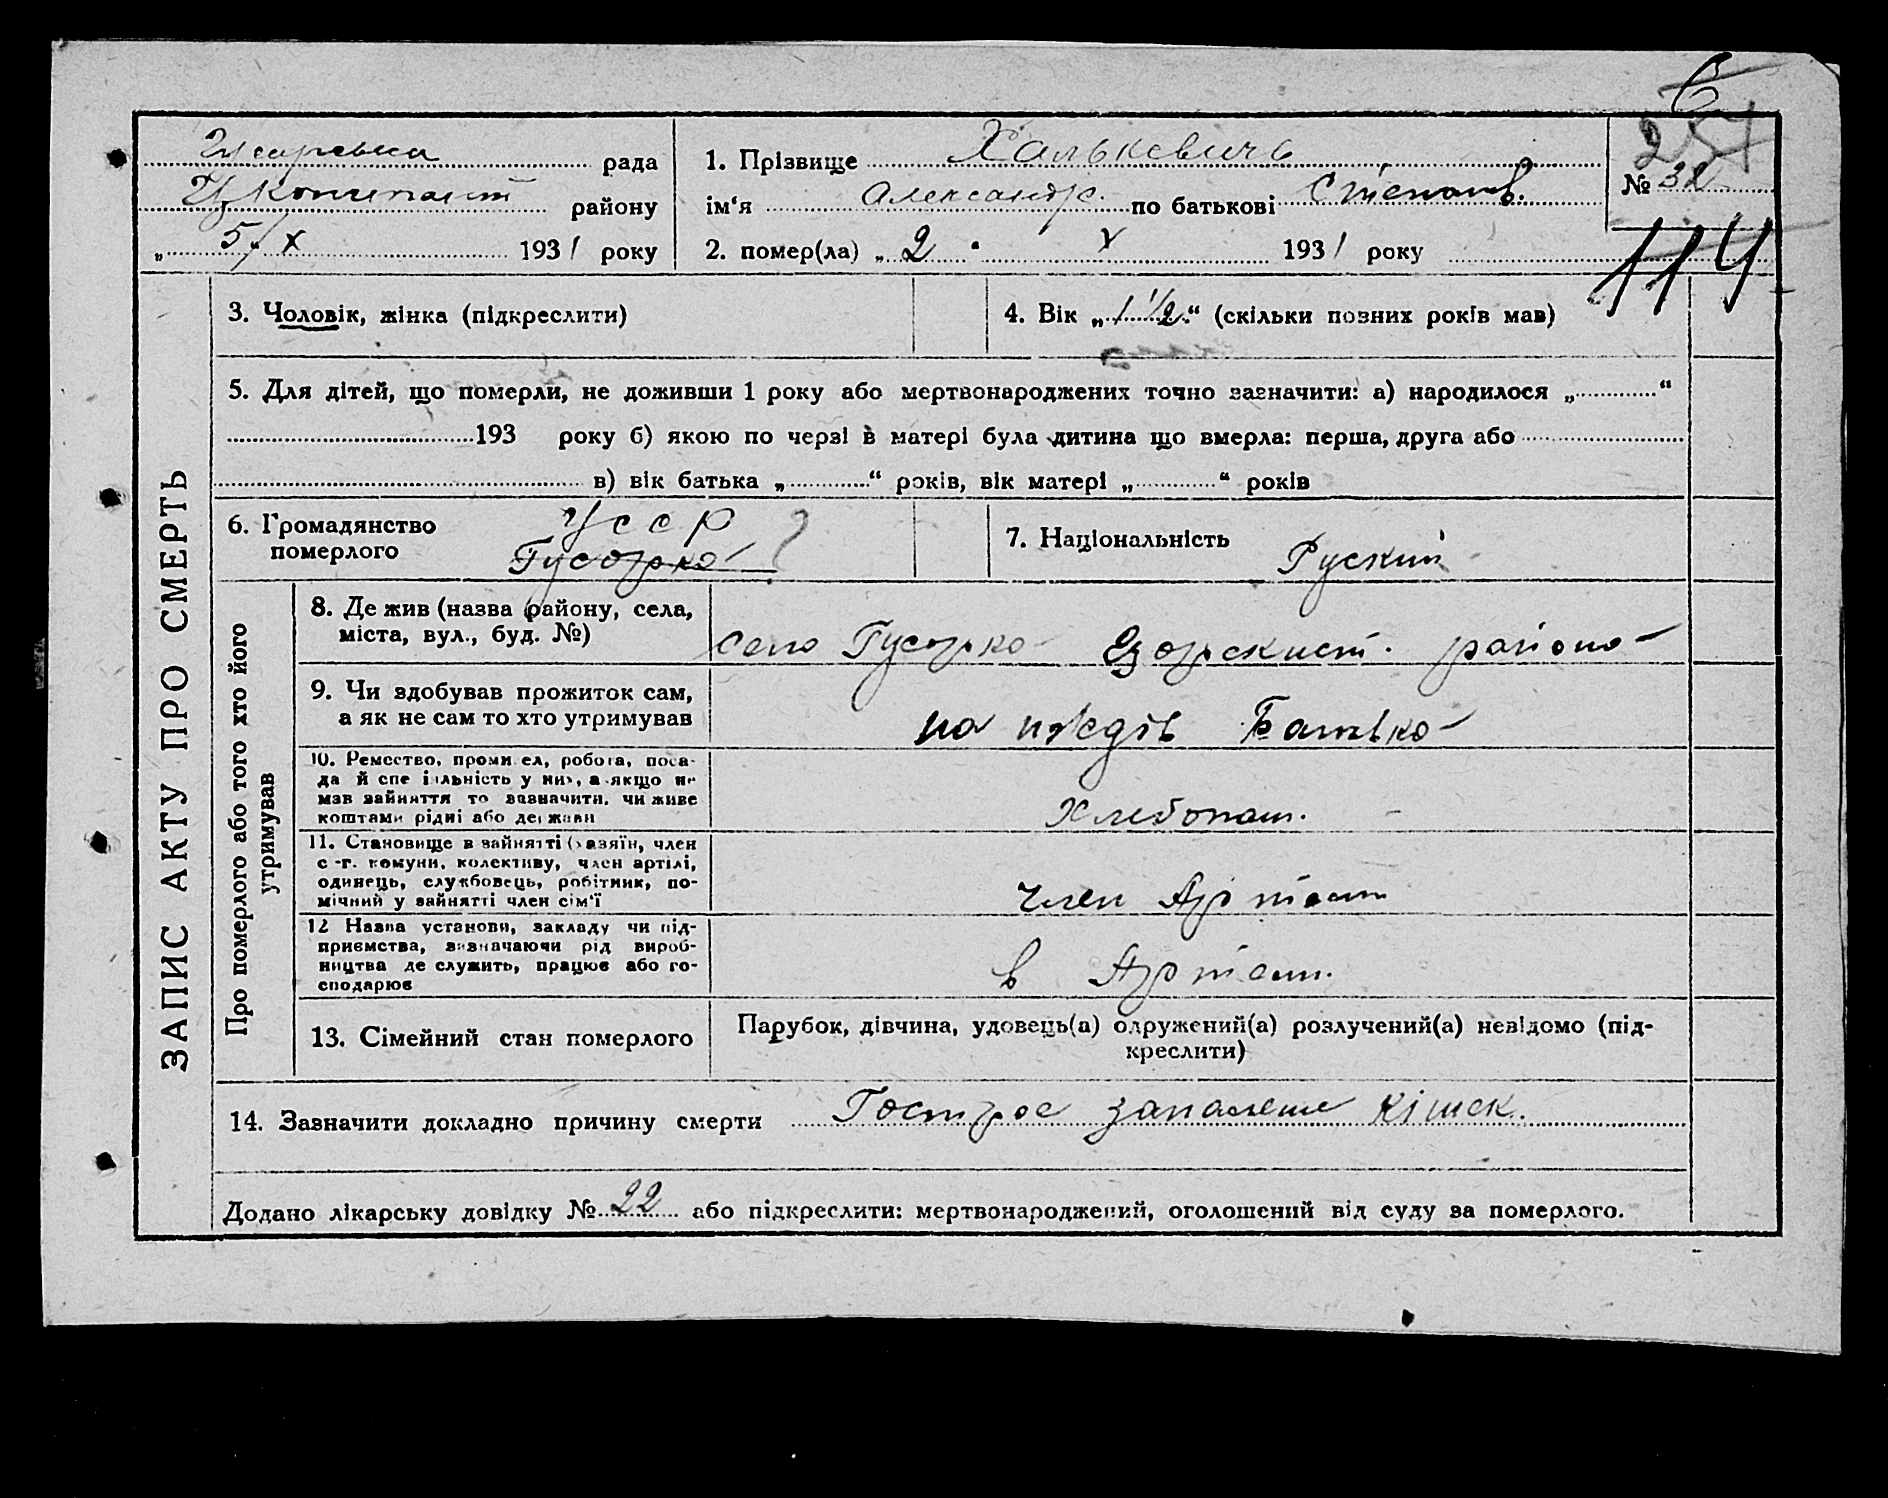 6
257
рада
району
„ 5/X 1931 року
1. Прізвище Халькевичь
ім‘я Александр. по батькові Степанов.
2. помер(ла) „ 2 “ X 1931 року
№ 32
114
ЗАПИС АКТУ ПРО СМЕРТЬ
3. Чоловік, жінка (підкреслити)
4. Вік „ 1 1/2 “ (скільки повних років мав)
5. Для дітей, що померли, не доживши 1 року або мертвонароджених точно зазначити: а) народилося „ “
193 року б) якою по черзі в матері була дитина що вмерла: перша, друга або
в) вік батька „ “ років, вік матері „ “ років
6. Громадянство
померлого
УССР ?
Гусарка
7. Національність Руский
Про померлого або того хто його
утримував
8. Де жив (назва району, села,
міста, вул., буд. №)
село Гусарка район
9. Чи здобував прожиток сам,
а як не сам то хто утримував
на Батько
10. Ремество, промисел, робота, поса-
да й спеціяльність у них, а якщо не
мав зайняття то зазначити, чи живе
коштами рідні або держави
Хлебопаш.
11. Становище в зайнятті (хазяїн, член
с.-г. комуни, колективу, член артілі,
одинець, службовець, робітник, по-
мічний у зайнятті член сім'ї
член
12 Назва установи, закладу чи під-
приємства, зазначаючи рід вироб-
ництва де служить, працює або го-
сподарює
в
13. Сімейний стан померлого
Парубок, дівчина, удовець(а) одружений(а) розлучений(а) невідомо (під-
креслити)
14. Зазначити докладно причину смерти Гострое запаление кішек.
Додано лікарську довідку № 22 або підкреслити: мертвонароджений, оголошений від суду за померлого.